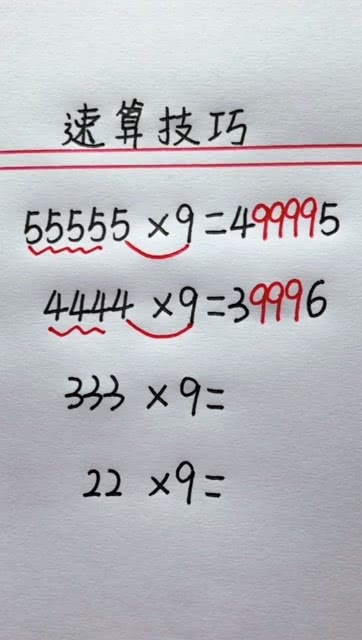 速算技巧
55555 × 9 = 499995
4444 × 9 = 39996
333 × 9 =
22 × 9 =